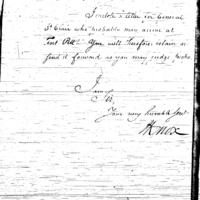 I enclose a letter for General
St Clair who probably may arrive at
Fort Pitt. You will therefore retain or
send it forward as you may judge
I am
Your very humble Servt
H Knox